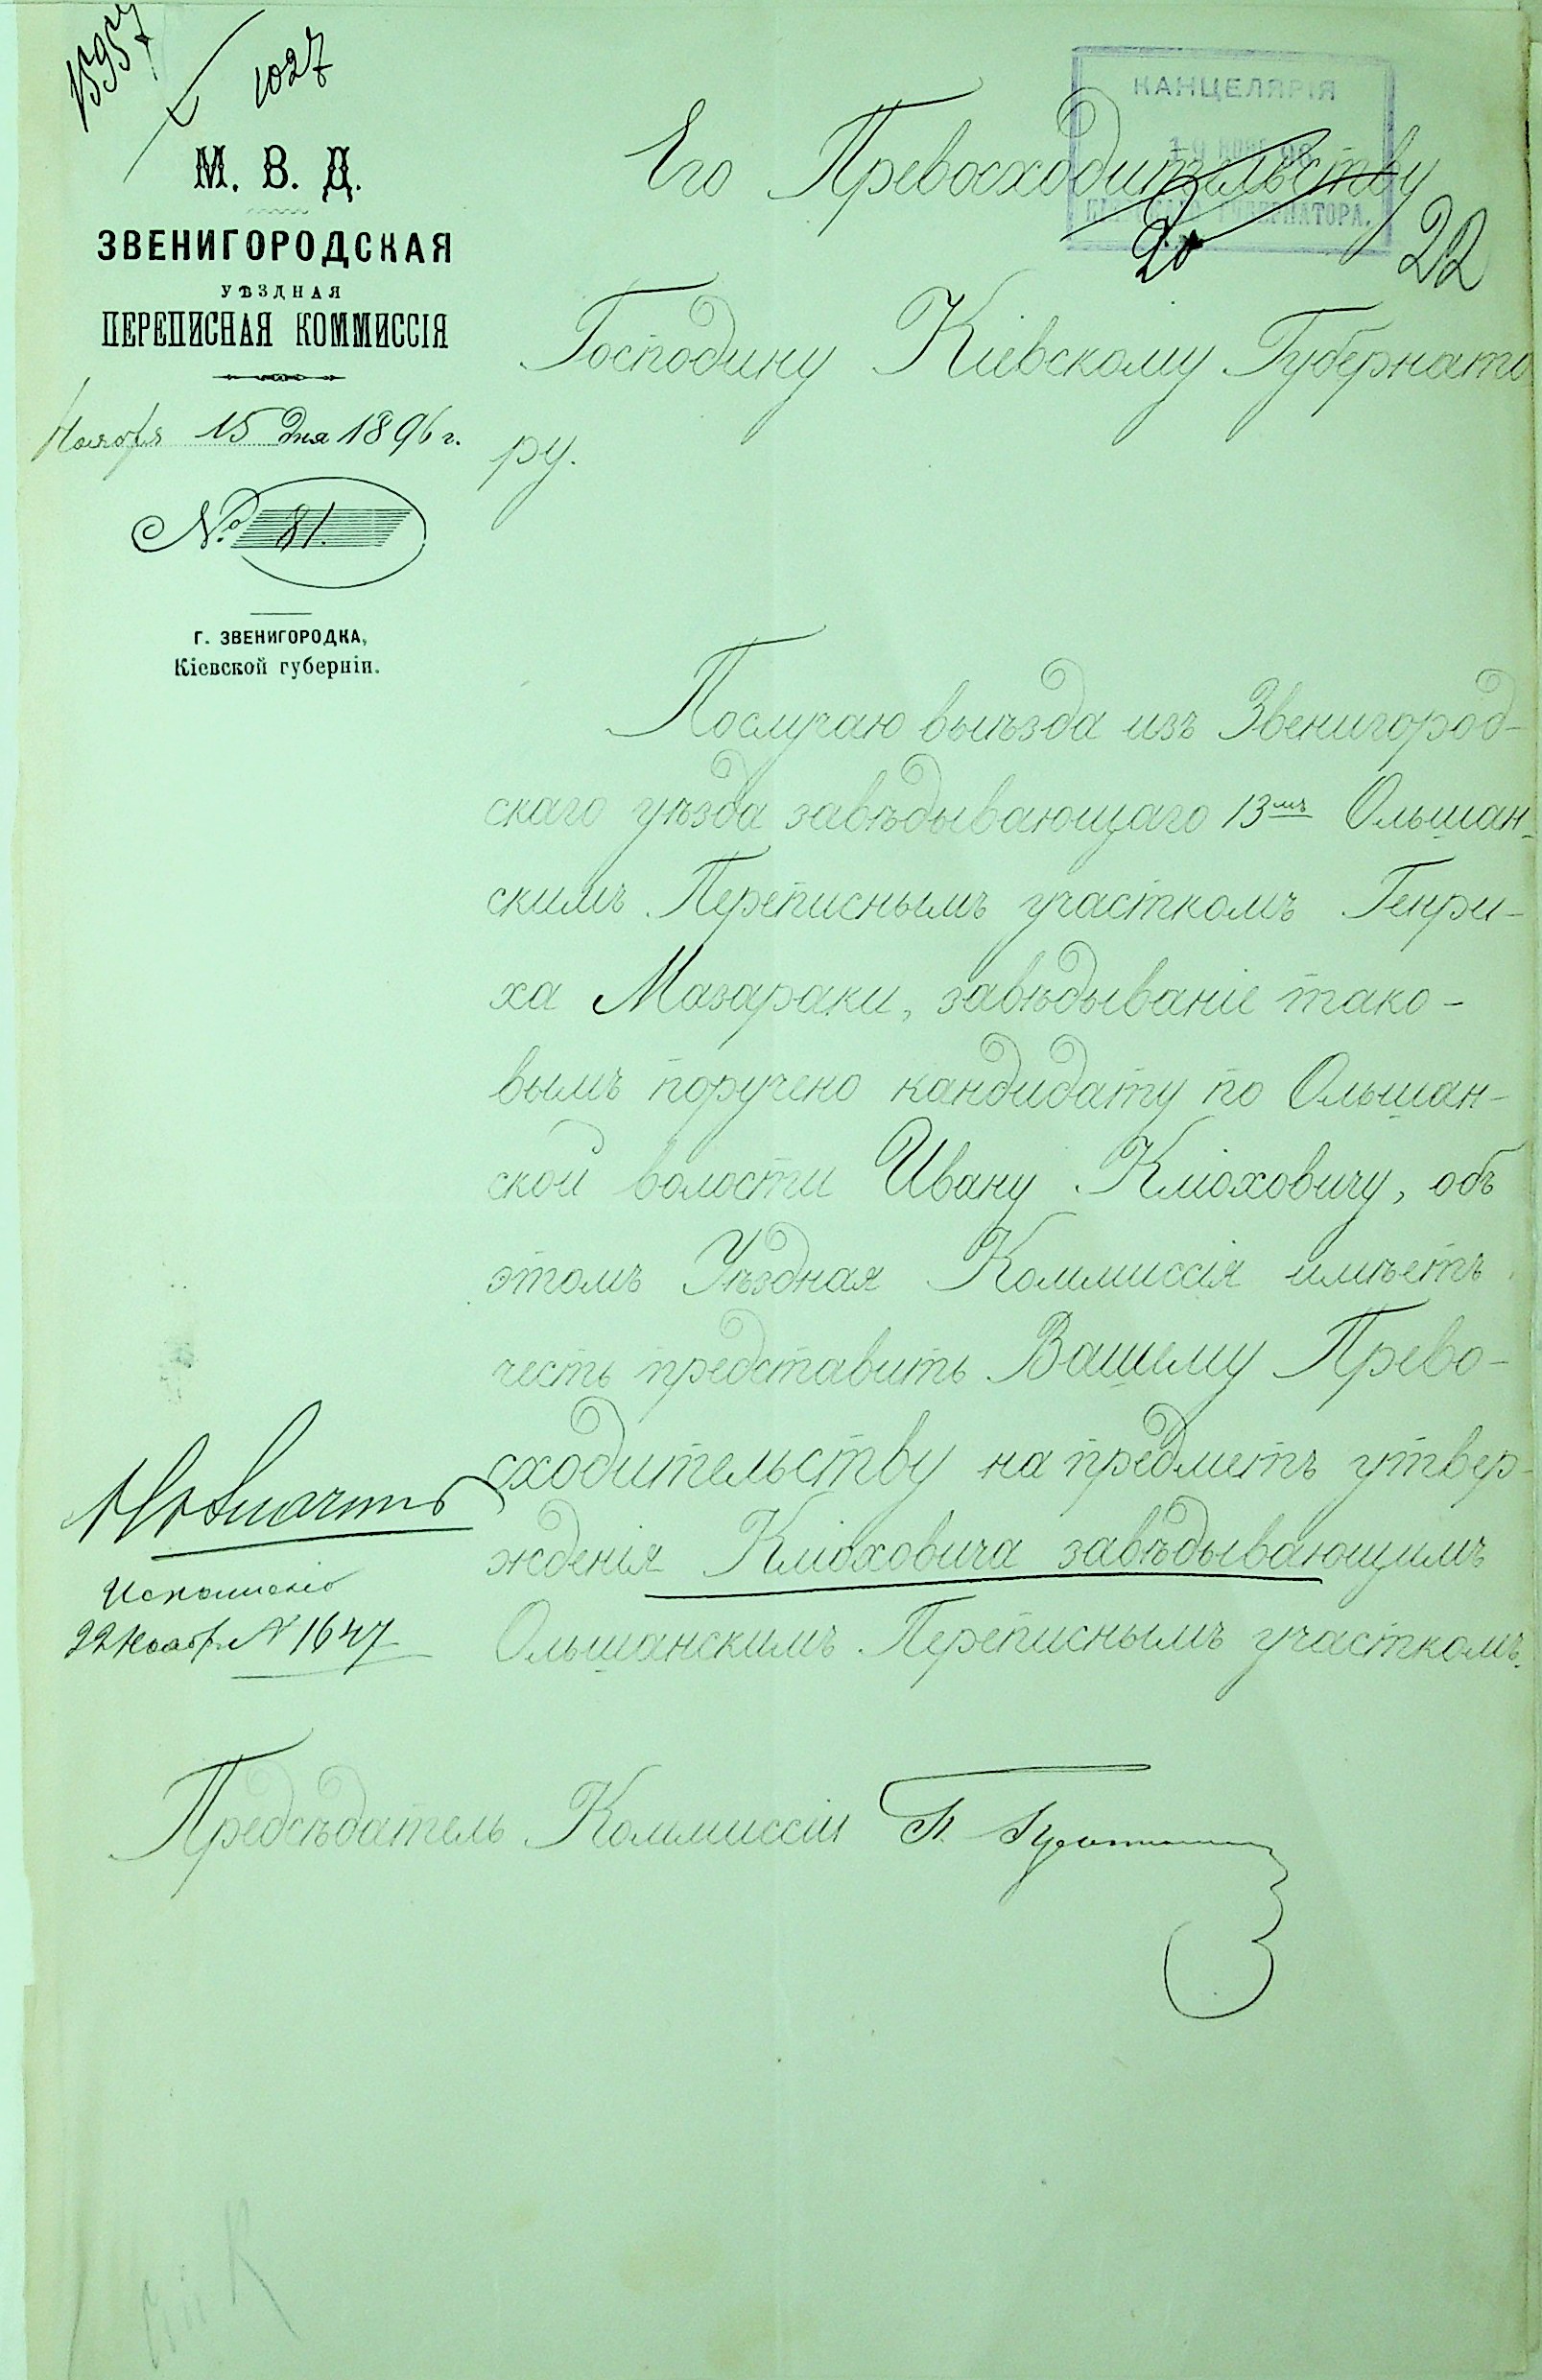 1027
М. В. Д.
ЗВЕНИГОРОДСКАЯ
УѢЗДНАЯ
ПЕРЕПИСНАЯ КОММИССІЯ
Ноября 15 дня 1896 г.
№ 81.
Г. ЗВЕНИГОРОДКА,
Кіевской губерніи.
КАНЦЕЛЯРІЯ
ГУБЕРНАТОРА.
Его Превосходительству
20
22
Господину Кіевскому Губернато
ру.
Послучаю выѣзда изъ Звенигород-
скаго уѣзда завѣдывающаго 13мъ Ольшан-
скимъ Переписнымъ участкомъ Генри-
ха Мазараки, завѣдываніе тако-
вымъ поручено кандидату по Ольшан-
ской волости Ивану Кліоховичу, объ
этомъ Уѣздная Коммиссія имѣетъ
честь представить Вашему Прево-
сходительству на предметъ утвер-
жденія Кліоховича завѣдывающимъ
Ольшанскимъ Переписнымъ участкомъ.
Исполнено
22 Нояб. № 1647
Предсѣдатель Коммиссіи